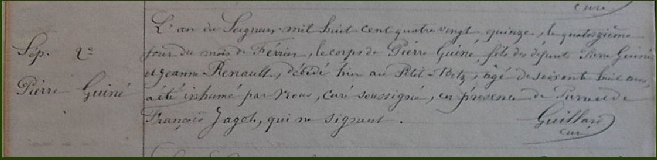 curé
L'an du Seigneur mil huit cent quatre vingt quinze, le quatorzième
Sép. 2e
jour du mois de Février, le corps de Pierre Guiné fils des défunts Guiné
Pierre Guiné
et Jeanne Renault, décédé hier au Petit âgé de soixante huit ans,
a été inhumé par nous, curé soussigné, en présence de de
François Jagot, qui ne signent.
Guillard
curé